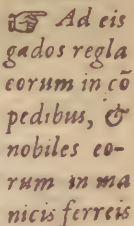 ☞ Ad eis
gados regla
eorum in cō
pedibus, &
nobiles eo-
rum in ma
nicis ferreis